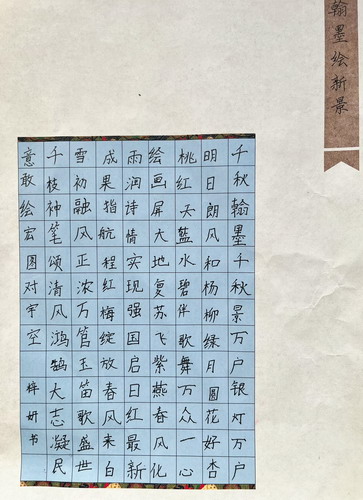 翰墨绘新景
千秋翰墨千秋景万户银灯万户
明日朗风和杨柳绿月圆花好杏
桃红天蓝水碧伴歌舞万众一心
绘画屏大地复苏飞紫燕春风化
雨润诗情实现强国启日红最新
成果指航程红梅绽放春风来自
雪初融风正浓万管玉笛歌盛世
千枝神笔颂清风鸿鹄大志凝民
意敢绘宏图对宇空 梓妍书